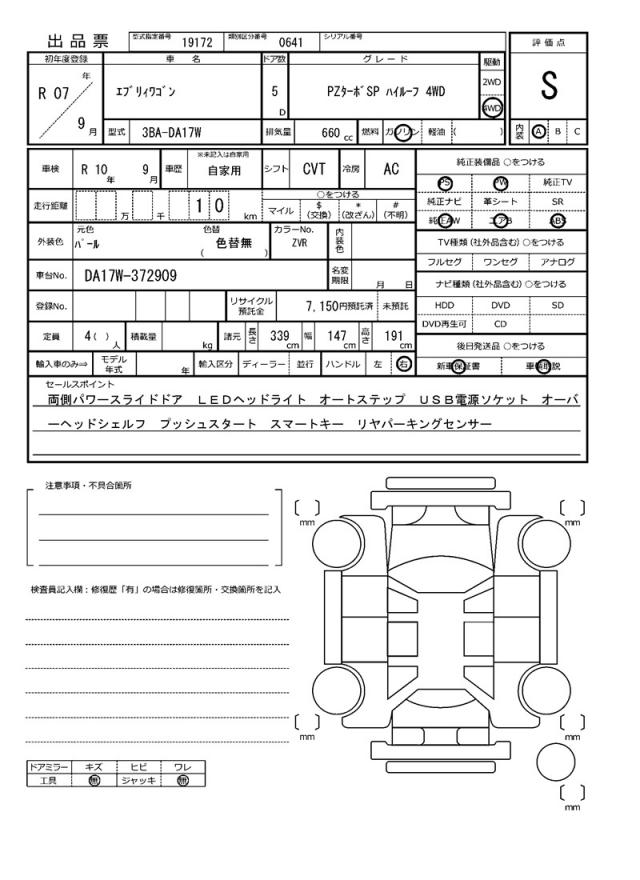 出品票 型式指定番号 19172 類別区分番号 0641 シリアル番号
評価点
S
初年度登録 車名 ドア数 グレード 駆動
R 07 年 9 月
エブリィワゴン 5 D PZターボSP ハイルーフ 4WD
2WD
4WD
型式 3BA-DA17W 排気量 660 cc 燃料 ガソリン 軽油 ( )
内装 A B C
車検 R 10 年 9 月 車歴 ※未記入は自家用 自家用 シフト CVT 冷房 AC
純正装備品 ○をつける
PS PW 純正TV
純正ナビ 革シート SR
純正AW エアB ABS
走行距離 万 千 1 0 km
○をつける
マイル $(交換) *(改ざん) #(不明)
外装色 元色 パール 色替 色替無 ( ) カラーNo. ZVR 内装色
TV種類(社外品含む)○をつける
フルセグ ワンセグ アナログ
車台No. DA17W-372909 名変期限 月 日
ナビ種類(社外品含む)○をつける
HDD DVD SD
DVD再生可 CD
登録No. リサイクル預託金 7,150円預託済 未預託
定員 4( )人 積載量 kg 諸元 長さ 339 cm 幅 147 cm 高さ 191 cm
後日発送品 ○をつける
新車保証書 車輌取説
輸入車のみ⇒ モデル年式 年 輸入区分 ディーラー 並行 ハンドル 左 右
セールスポイント
両側パワースライドドア LEDヘッドライト オートステップ USB電源ソケット オーバ
ーヘッドシェルフ プッシュスタート スマートキー リヤパーキングセンサー
注意事項・不具合箇所
検査員記入欄:修復歴「有」の場合は修復箇所・交換箇所を記入
mm
mm
mm
mm
mm
ドアミラー キズ ヒビ ワレ
工具 無 ジャッキ 無